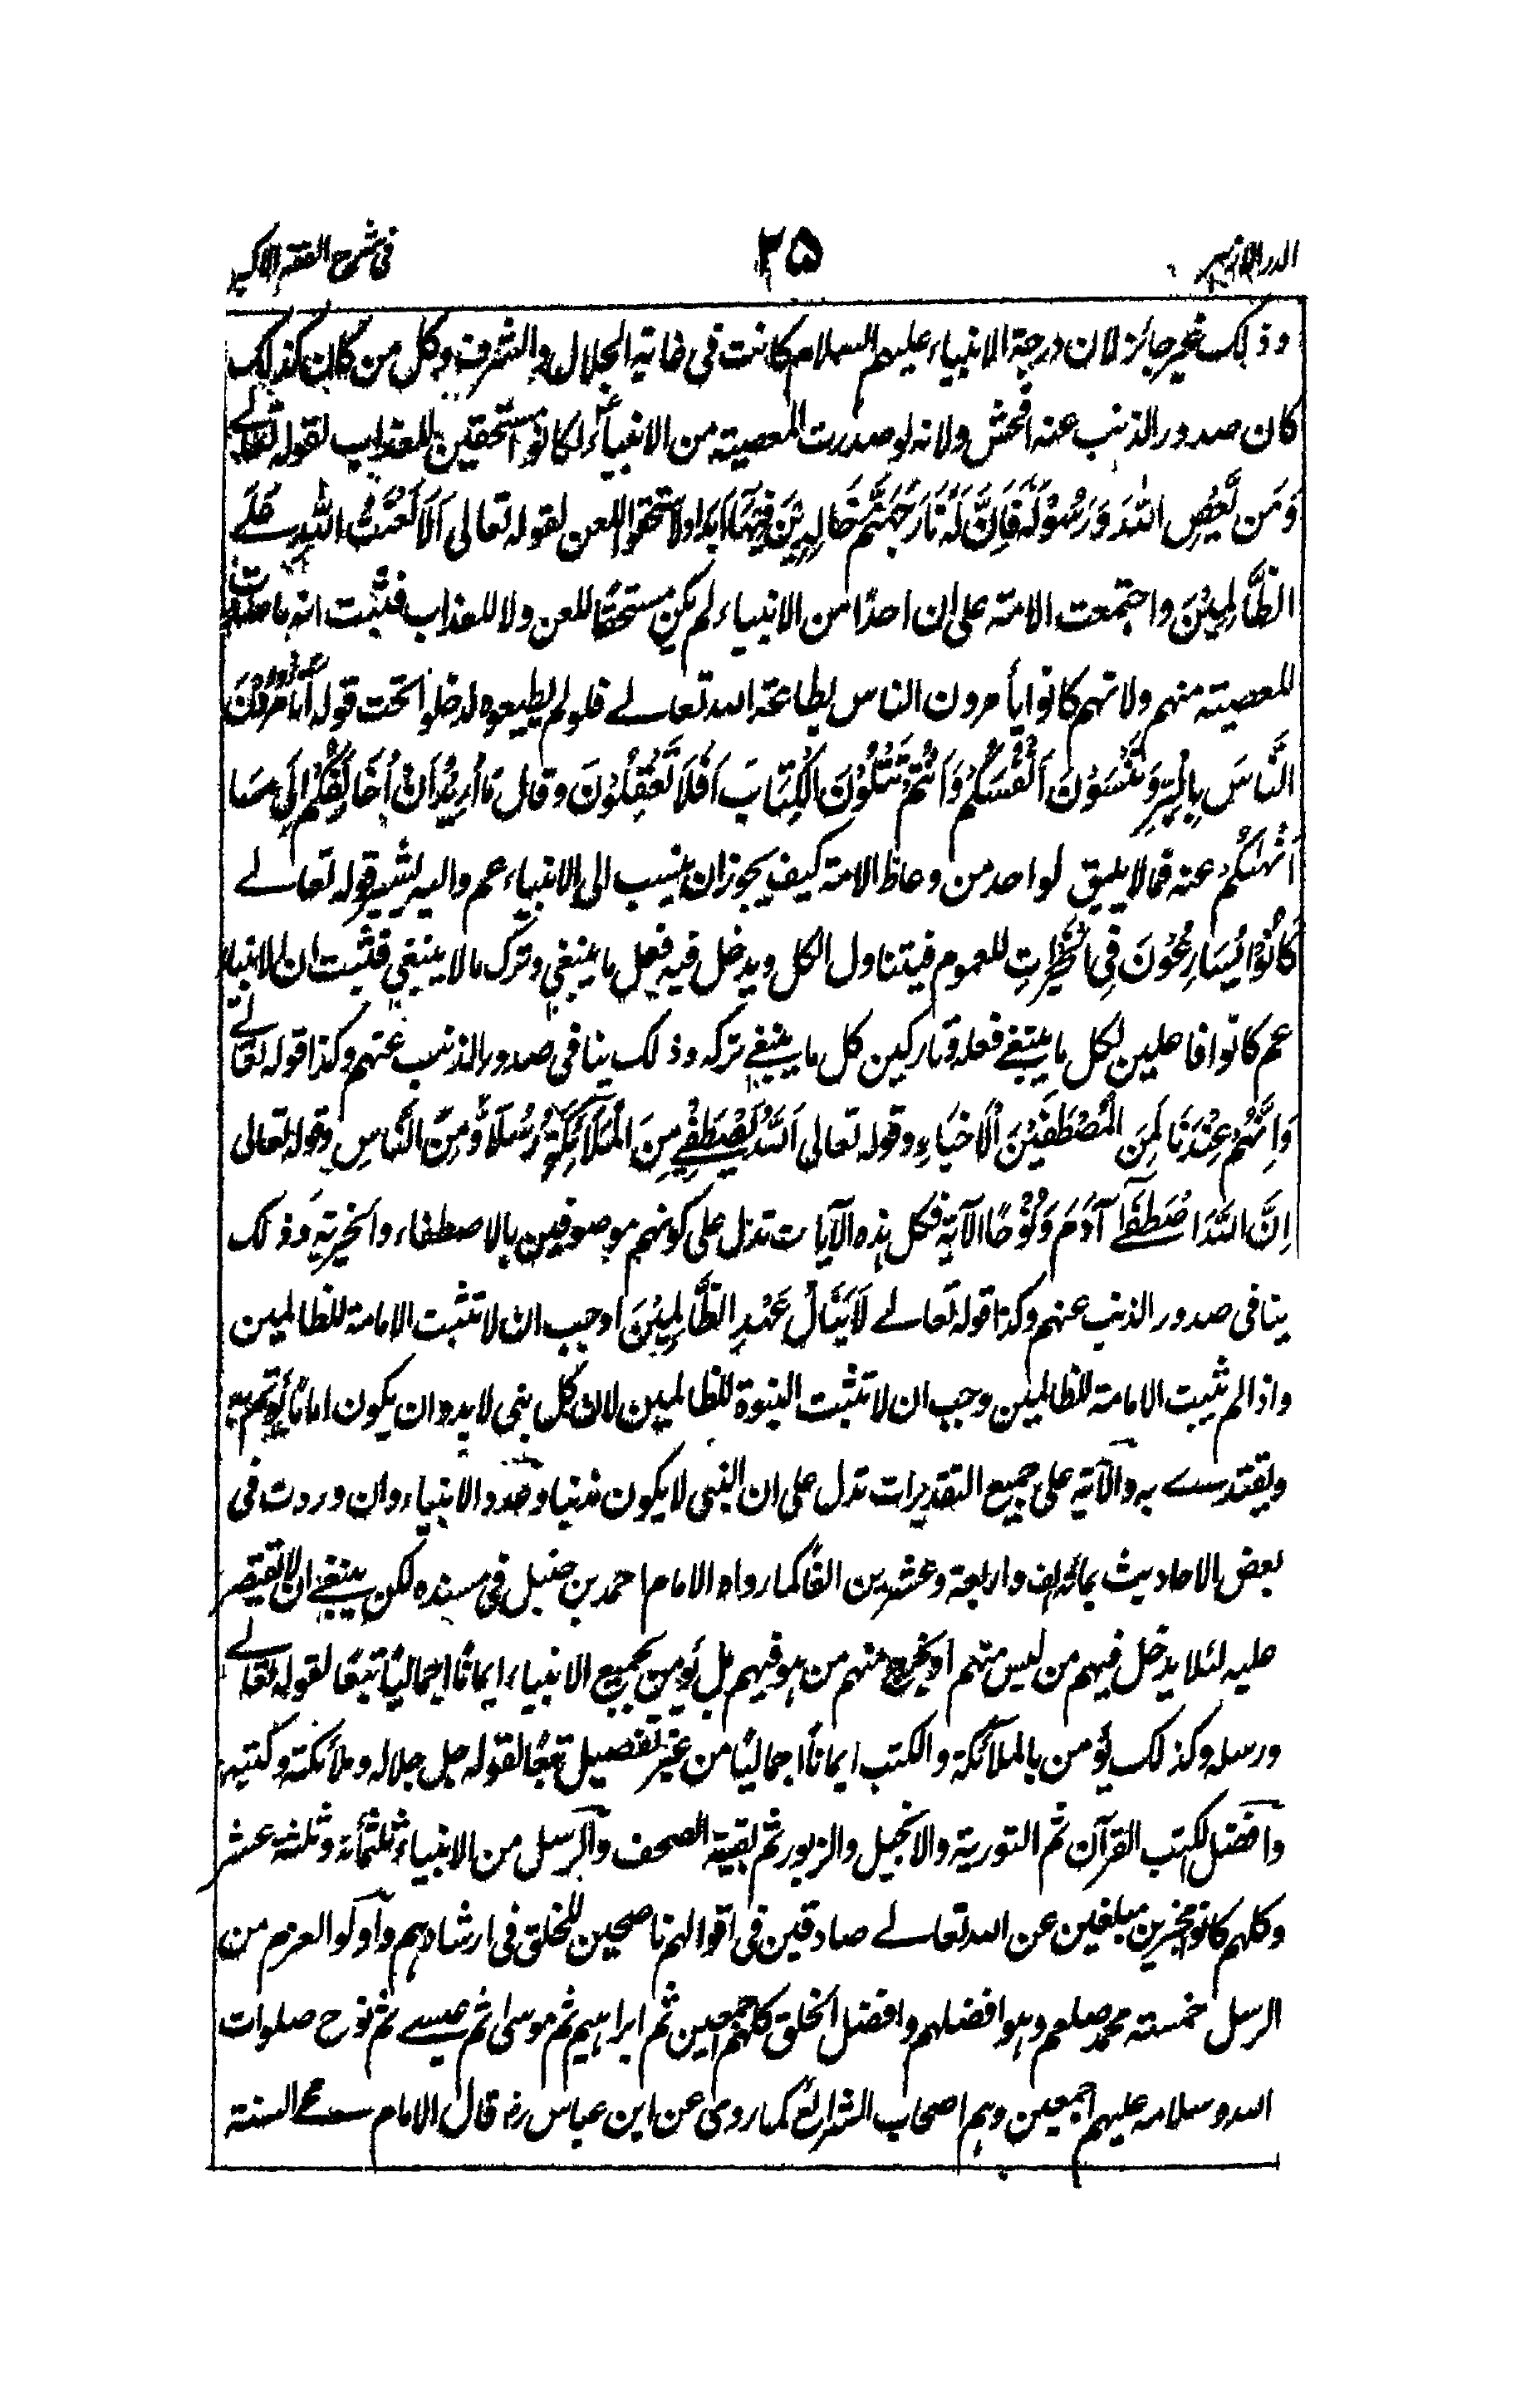 الدر الازهر ٢٥ فى شرح الفقه الاكبر
وذلك غير جائز لان درجة الانبياء عليهم السلام كانت فى غاية الجلال والشرف وكل من كان كذلك
كان صدور الذنب عنه افحش ولانه لو صدرت المعصية من الانبياءؑ لكانوا مستحقين للعذاب لقوله تعالے
وَمَن يَّعْصِ اللّٰهَ وَرَسُوْلَهٗ فَاِنَّ لَهٗ نَارَ جَهَنَّمَ خَالِدِيْنَ فِيْهَا اَبَدًا ولاستحقوا اللعن لقوله تعالى اَلَا لَعْنَتُ اللّٰهِ عَلَے
الظَّالِمِيْنَ واجتمعت الامة على ان احدًا من الانبياء لم يكن مستحقًا للعن ولا للعذاب فثبت انه ما صدرت
المعصية منهم ولانهم كانوا يأمرون الناس بطاعة الله تعالے فلو لم يطيعوه لدخلوا تحت قوله اَتَأْمُرُوْنَ
النَّاسَ بِالْبِرِّ وَتَنْسَوْنَ اَنْفُسَكُمْ وَاَنْتُمْ تَتْلُوْنَ الْكِتَابَ اَفَلَا تَعْقِلُوْنَ وقال مَا اُرِيْدُ اَنْ اُخَالِفَكُمْ اِلٰى مَا
اَنْهٰىكُمْ عنه فما لا يليق لواحد من وعاظ الامة كيف يجوز ان ينسب الى الانبياء عم واليه يشير قوله تعالے
كَانُوْا يُسَارِعُوْنَ فِى الْخَيْرٰتِ للعموم فيتناول الكل ويدخل فيه فعل ما ينبغي وترك ما لا ينبغي فثبت ان الانبياء
عم كانوا فاعلين لكل ما ينبغے فعله وتاركين كل ما ينبغے تركه وذلك ينافى صدور الذنب عنهم وكذا قوله تعالے
وَاِنَّهُمْ عِنْدَنَا لَمِنَ الْمُصْطَفَيْنَ الْاَخْيَارِ وقوله تعالى اَللّٰهُ يَصْطَفِے مِنَ الْمَلَآئِكَةِ رُسُلًا وَّمِنَ النَّاسِ وقوله تعالى
اِنَّ اللّٰهَ اصْطَفَےٓ آدَمَ وَنُوْحًا الآية فكل هذه الآيات تدل على كونهم موصوفين بالاصطفاء والخيرية وذلك
ينافى صدور الذنب عنهم وكذا قوله تعالے لَا يَنَالُ عَهْدِ الظَّالِمِيْنَ اوجب ان لا تثبت الامامة للظالمين
واذا لم تثبت الامامة للظالمين وجب ان لا تثبت النبوة للظالمين لان كل نبى لا بد وان يكون امامًا يؤتم به
ويقتدے به والآية على جميع التقديرات تدل على ان النبى لا يكون مذنبا وعدد الانبياء وان وردت فى
بعض الاحاديث بمائة الف واربعة وعشرين الفًا كما رواه الامام احمد بن حنبل فى مسنده لكن ينبغے ان لا تقتصر
عليه لئلا يدخل فيهم من ليس منهم او يخرج منهم من هو فيهم بل يؤمن بجميع الانبياء ايمانًا اجماليًا تبعًا لقوله تعالے
ورسله وكذلك يؤمن بالملآئكة والكتب ايمانًا اجماليًا من غير تفصيل تبعًا لقوله جل جلاله وملائكته وكتبه
وافضل الكتب القرآن ثم التورية والانجيل والزبور ثم بقية الصحف والرسل من الانبياء ثلثمائة وثلثة عشر
وكلهم كانوا مخبرين مبلغين عن الله تعالے صادقين فى اقوالهم ناصحين للخلق فى ارشادهم واولوا العزم من
الرسل خمسة محمد صلعم وهو افضلهم وافضل الخلق كلهم اجمعين ثم ابراهيم ثم موسى ثم عيسے ثم نوح صلوات
الله وسلامه عليهم اجمعين وهم اصحاب الشرائع كما روى عن ابن عباس رضـ قال الامام محے السنة